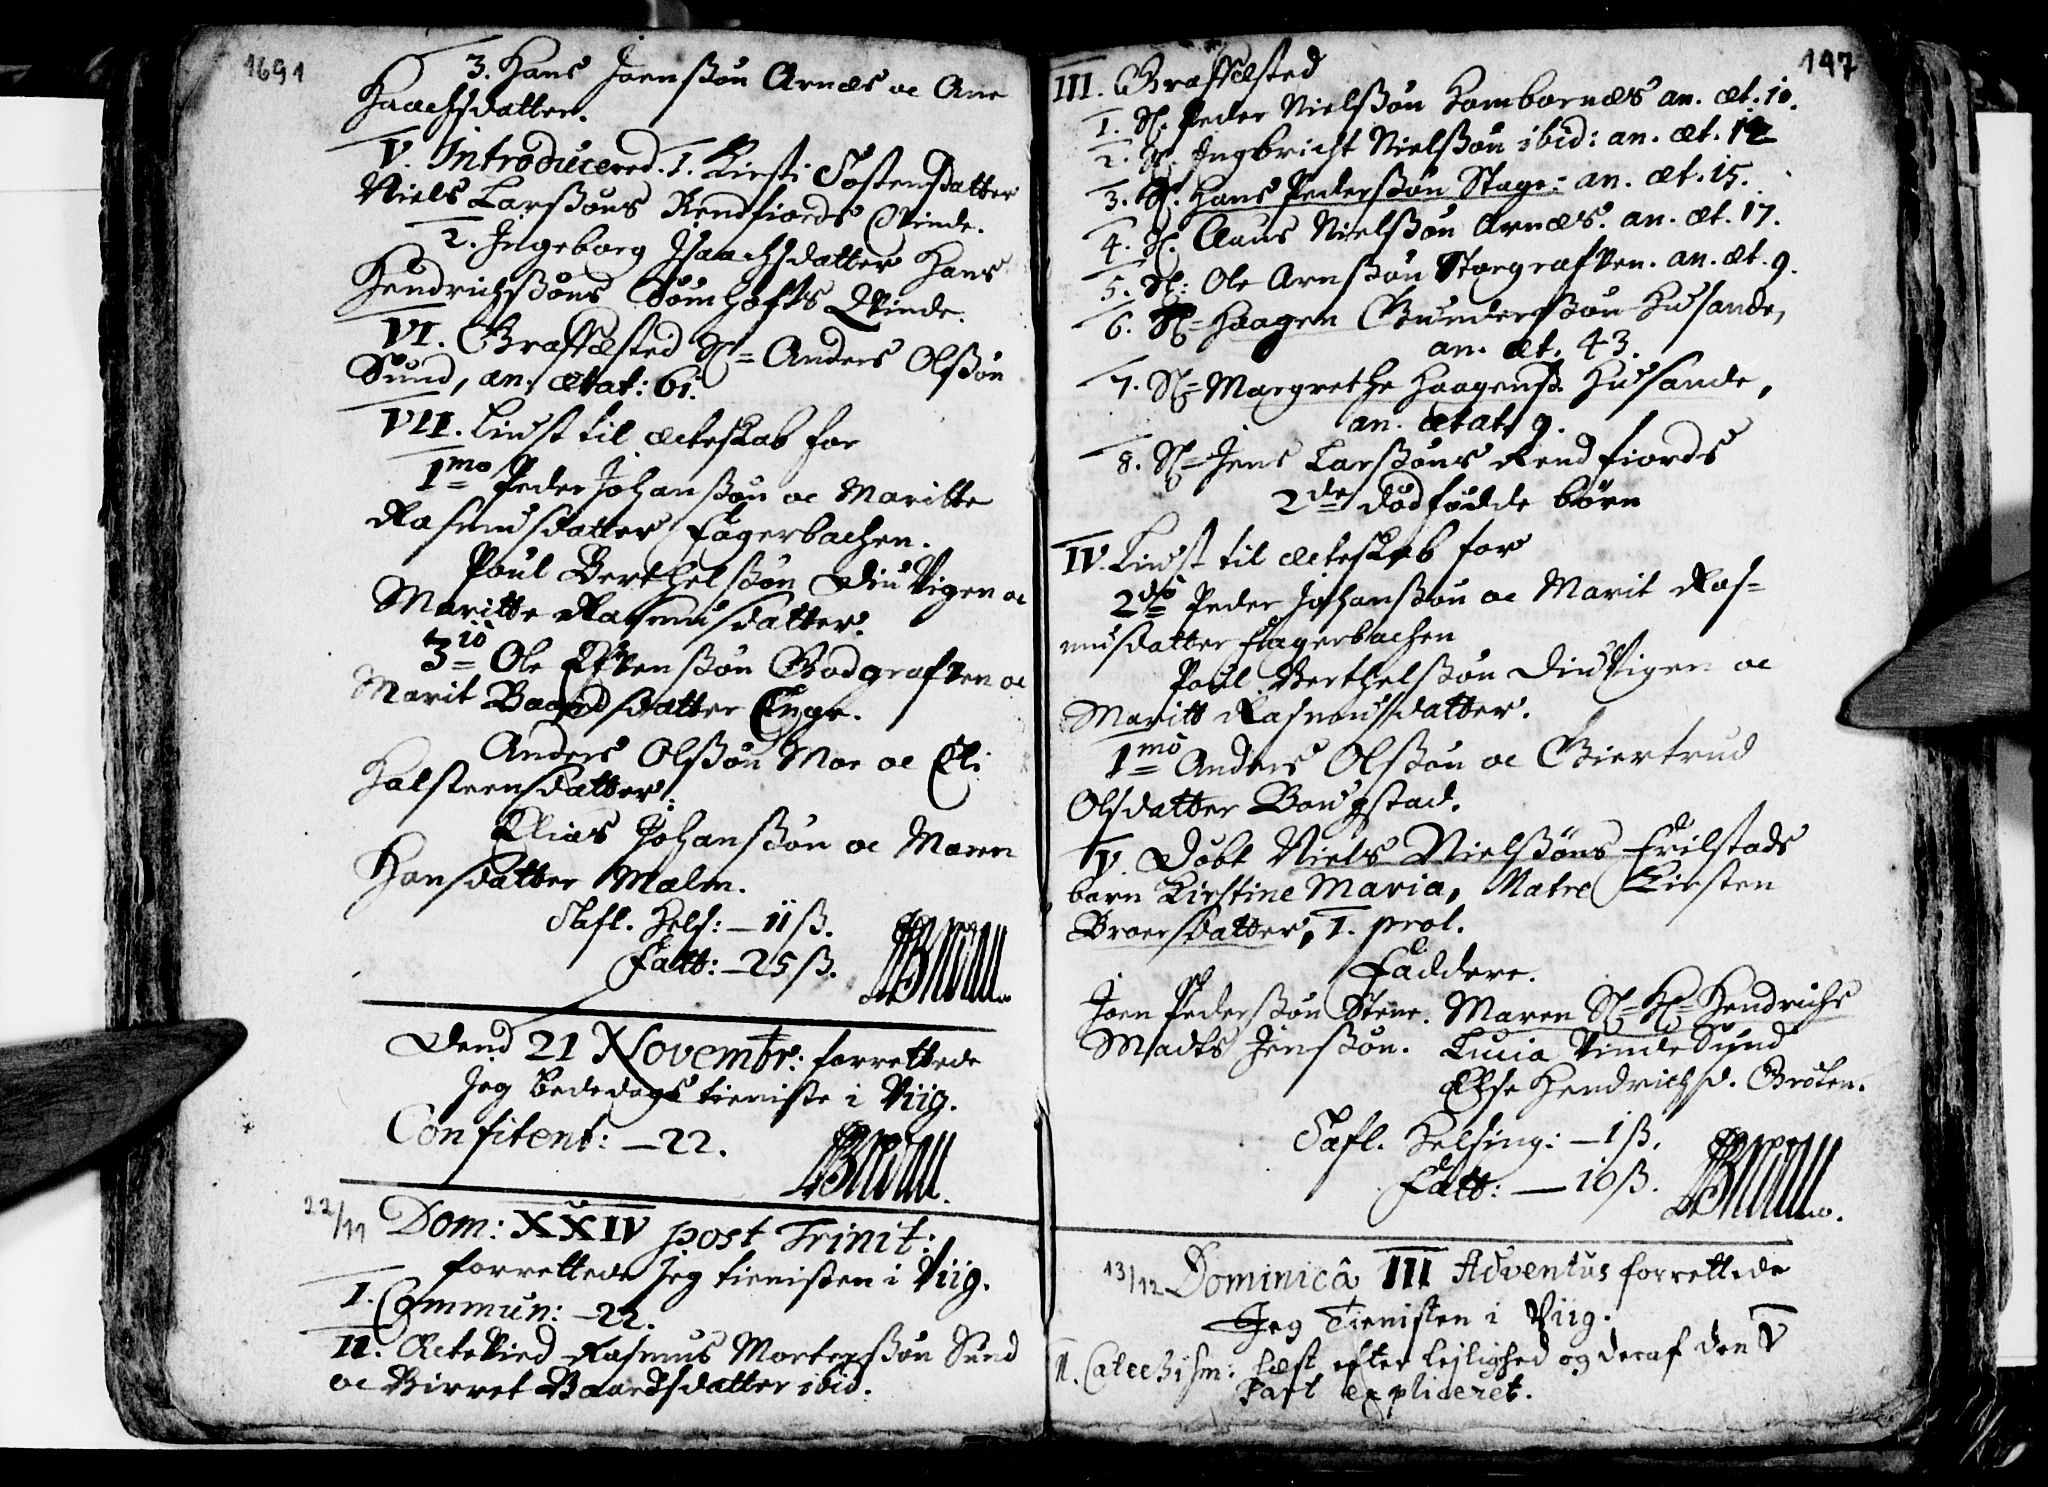 1691
3. Hans Joensßøn Arnæs oc Ane
Haachsdatter.
V. Introducered. 1. Kirsti Tostensdatter
Niels Larßøns Rendfiords Qvinde.
2. Ingeborg Isaachsdatter Hans
Hendrichsßøns Tømhofts Qvinde.
VI. Graffæsted Sl= Anders Olßøn
Sund, an. ætat: 61.
VII. Liust til ecteskab for
1mo Peder Johanßøn oc Maritte
Rasmusdatter Fagerbachen.
Poul Berthelßøn Diuvigen oc
Maritte Rasmusdatter.
3io Ole Efvenßøn Godgrafven oc
Marit Baardsdatter Enge.
Anders Olßøn Moe oc Eli
Halsteensdatter.
Elias Johanßøn oc Maren
Hansdatter Malm.
Tafl. Hels: – 11 ß.
Fatt: – 25 ß.
Dend 21 Novembr: forrettede
jeg bededags tieniste i Viig.
Confitent: – 22.
22/11 Dom: XXIV post Trinit:
forrettede jeg tienisten i Viig.
I. Commun: – 22.
II. Ectevied Rasmus Mortensßøn Sund
oc Birret Baardsdatter ibid.
147
III. Graffæsted
1. Sl. Peder Nielßøn Hombornæs an. æt. 10.
2. Sl. Ingbricht Nielßøn ibid: an. æt. 12
3. Sl. Hans Pederßøn Stage: an. æt. 15.
4. Sl. Claus Nielßøn Arnæs. an. æt. 17.
5. Sl: Ole Arnßøn Storgrafven. an. æt. 9.
6. Sl= Haagen Gunderßøn Husande,
an. æt. 43.
7. Sl= Margrethe Haagensd. Husande,
an. ætat. 9.
8. Sl= Jens Larßøns Rendfiords
2de dødfødde børn
IV. Liust til ecteskab for
2do Peder Johanßøn oc Marit Ras=
musdatter Fagerbachen
Poul Berthelßøn Diuvigen oc
Maritt Rasmusdatter.
1mo Anders Olßøn oc Giertrud
Olsdatter Bougstad.
V. Døbt Niels Nielßøns Frilstads
barn Kirstine Maria, Matre Kirsten
Broersdatter, 1. prol.
Faddere.
Joen Pederßøn Stene. Maren Sl= H= Hendrichs
Madts Jenßøn. Lucia Vinde Sund
Else Hendrichsd. Brøten.
Tafl. Helsing: – 1 ß.
Fatt: – 10 ß.
13/12 Dominicâ III Adventus forrettede
Jeg Tienisten i Viig.
II. Catechism: læst efter leilighed og deraf den V
Part expliceret.